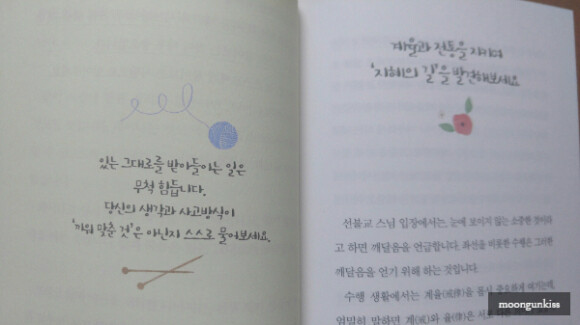 있는 그대로를 받아들이는 일은
무척 힘듭니다.
당신의 생각과 사고방식이
'끼워 맞춘 것'은 아닌지 스스로 물어보세요.
계율과 전통을 지키며
'지혜의 길'을 발견해보세요
선불교 스님 입장에서는, 눈에 보이지 않는 소중한 것이라
고 하면 깨달음을 언급합니다. 좌선을 비롯한 수행은 그러한
깨달음을 얻기 위해 하는 것입니다.
수행 생활에서는 계율(戒律)을 몹시 중요하게 여기는데,
엄밀히 말하면 계(戒)와 율(律)은 서로 다
moongunkiss